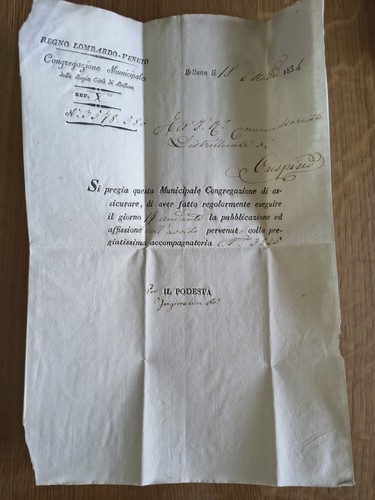 REGNO LOMBARDO-VENETO
Congregazione Municipale
della Regia Città di Belluno
SEZ. X
N. 3578
Belluno li 18 1834
All' I. R. Commissariato
Distrettuale di
Crespino
Si pregia questa Municipale Congregazione di as-
sicurare, di aver fatto regolarmente eseguire
il giorno andante la pubblicazione ed
affissione avviso pervenut colla pre-
giatissima accompagnatoria N.
Per IL PODESTÀ